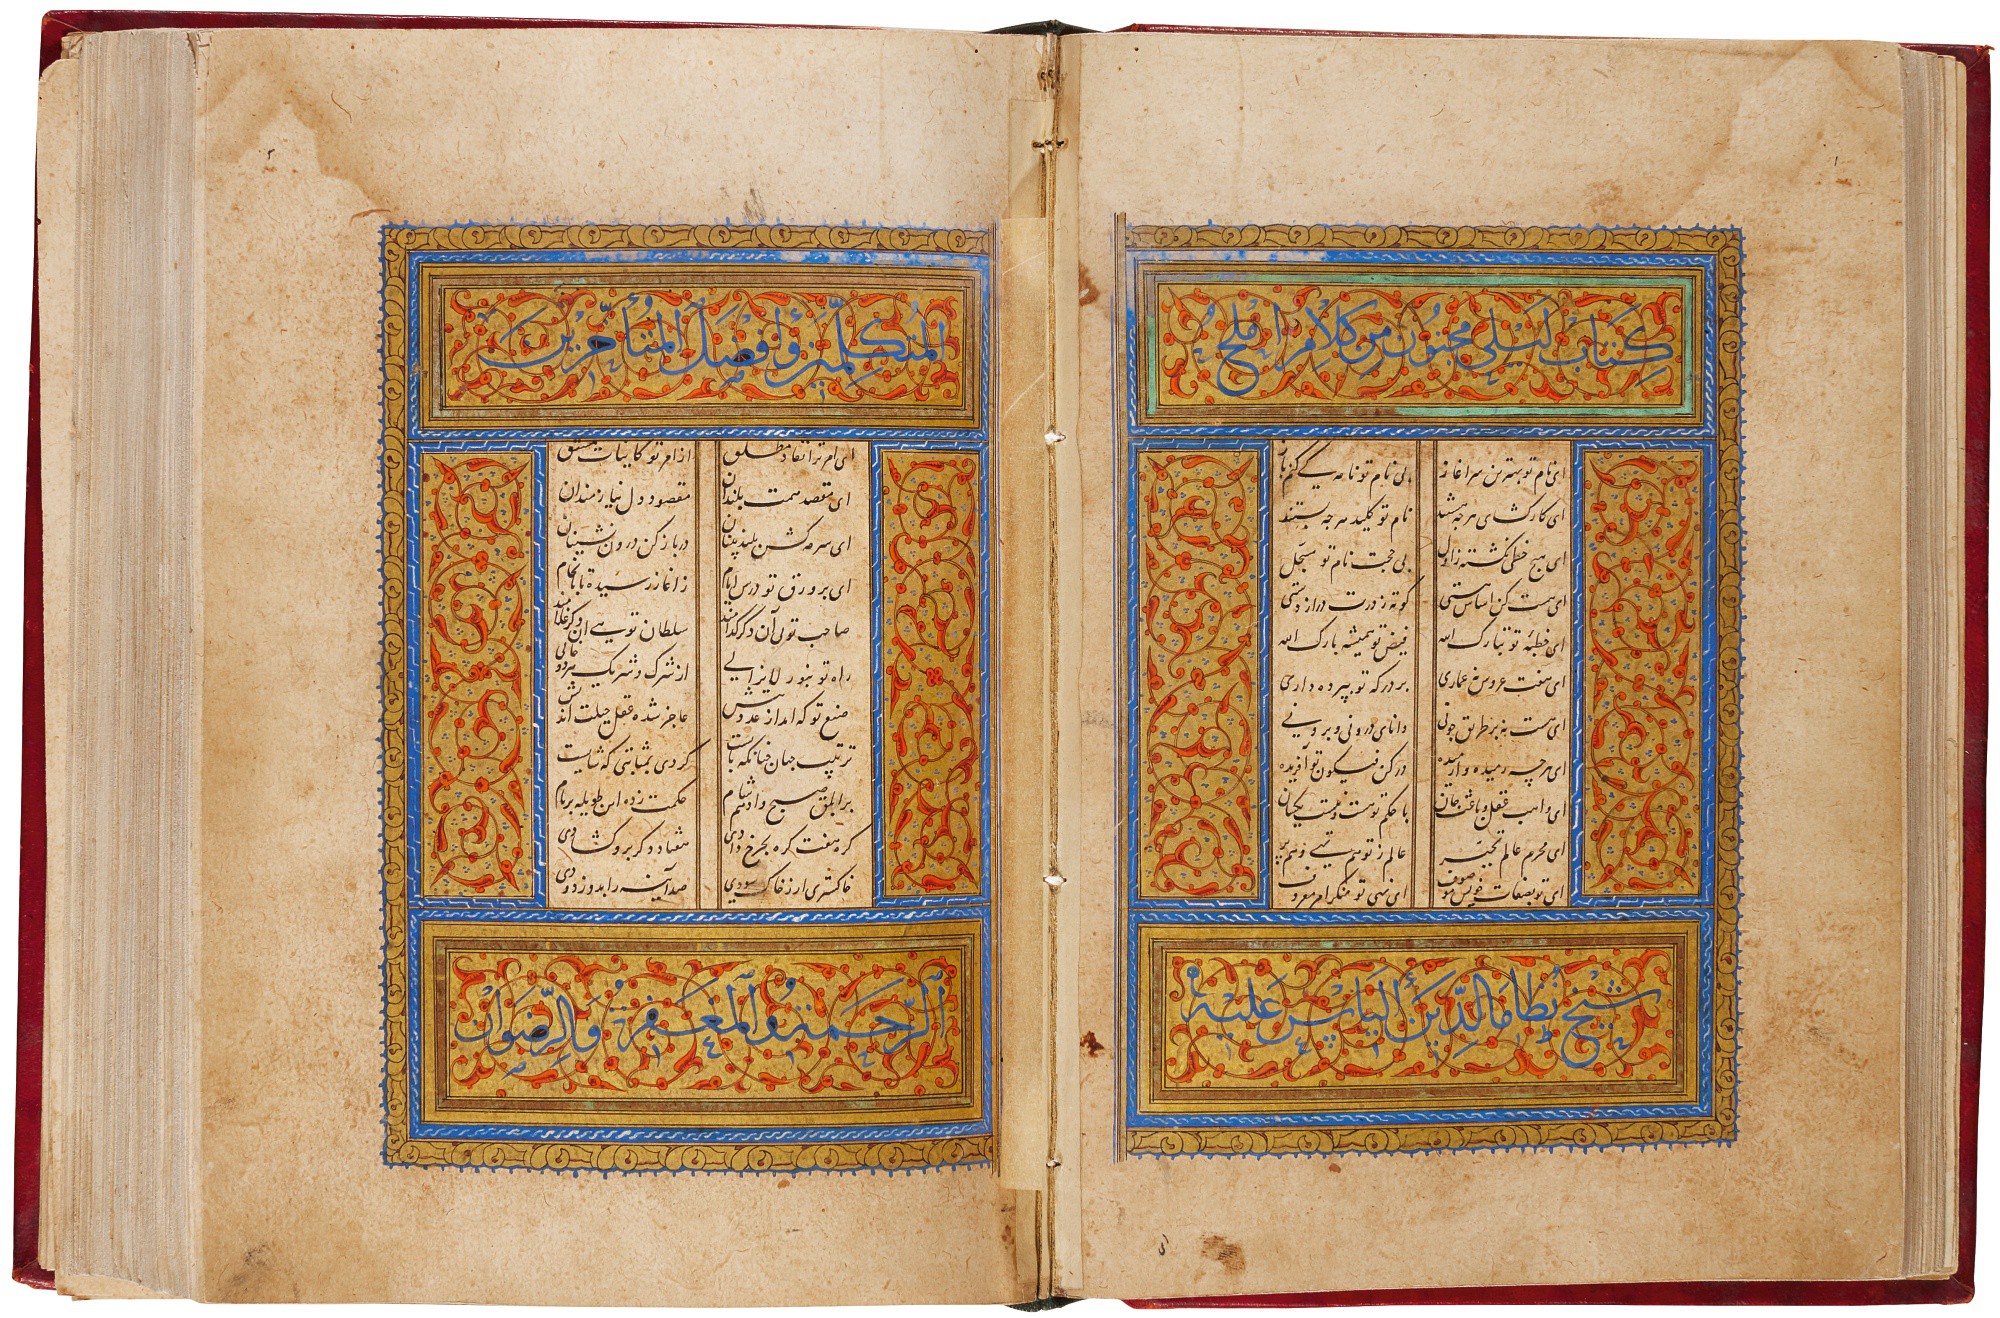 كتاب ليلى مجنون من كلام املح
ای نام تو بهترین سراغاز بی نام تو نامه کی کنم باز
ای کارکشای هرچه هستند نام تو کلید هرچه بستند
ای هیچ خطی نکشته ز اول بی حجت نام تو مسجل
ای هست کن اساس هستی کوته ز درت دراز دستی
ای خطبهٔ تو تبارک الله فیض تو همیشه بارک الله
ای هفت عروس نه عماری بر درکه تو بپرده داری
ای هست نه بر طریق چونی دانای درونی و برونی
ای هرچه رمیده وارمیده در کن فیکون تو آفریده
ای واهب عقل و باعث جان با حکم تو هست و نیست یکسان
ای محرم عالم تحیر عالم ز تو هم تهی و هم پر
ای تو بصفات خویش موصوف ای نهی تو منکر امر معروف
شيخ نظام الدين ألياس عليه
المتكلمين وأفضل المتأخرين
ای امر ترا نفاذ مطلق از امر تو کاینات مشتق
ای مقصد همت بلندان مقصود دل نیازمندان
ای سرمه کش بلند بینان در باز کن درون نشینان
ای بر ورق تو درس ایام ز اغاز رسیده تا بانجام
صاحب تویی آن دکر کدامند سلطان تویی این دکر غلامند
راه تو بنور لایزالی از شرک و شریک هر دو خالی
صنع تو کامد از عدد بیش عاجز شده عقل حیلت اندیش
ترتیب جهان چنانکه بایست کردی بمثابتی که شایست
بر ابلق صبح و ادهم شام حکمت زده این طویله بر بام
کر هفت کره بچرخ دادی هفتاد دکر برو کشادی
خاکستری ار ز خاک سودی صد آینه را بدو زدودی
الرحمة والمغفرة والرضوان